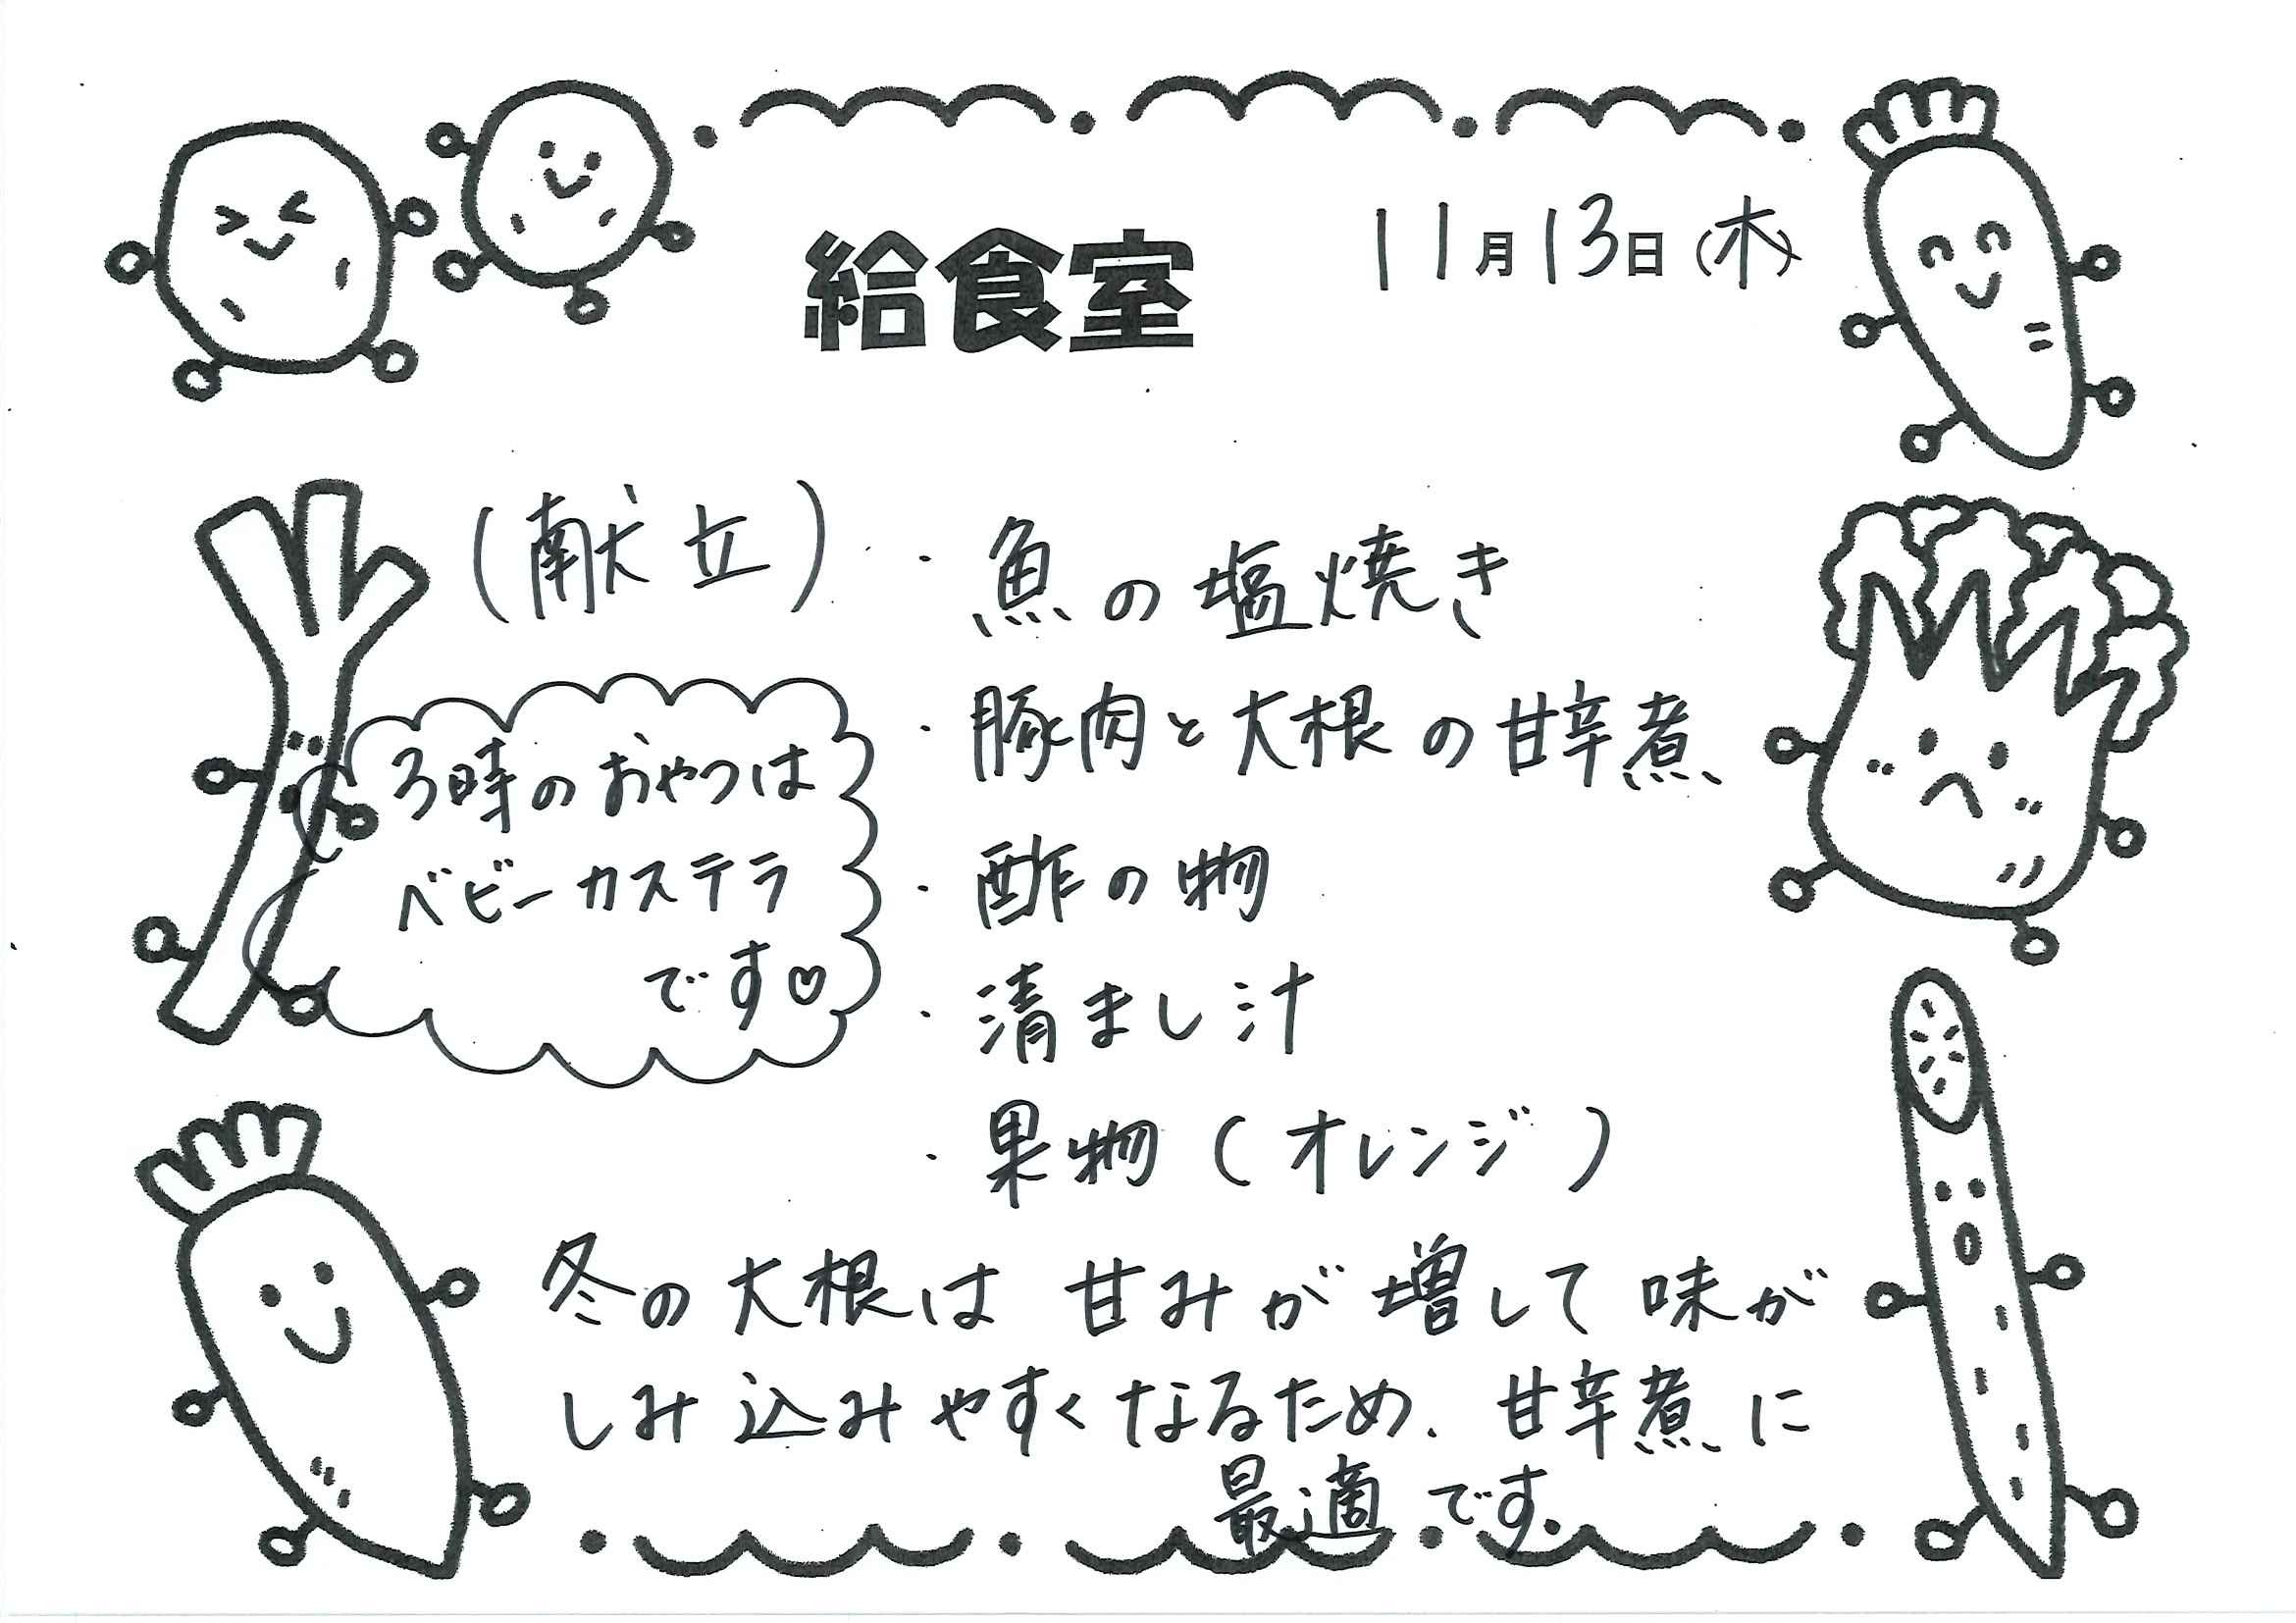 給食室
11月13日(木)
(献立)
・魚の塩焼き
・豚肉と大根の甘辛煮
・酢の物
・清まし汁
・果物(オレンジ)
3時のおやつは
ベビーカステラ
です♡
冬の大根は 甘みが増して 味が
しみ込みやすくなるため、甘辛煮に
最適です。